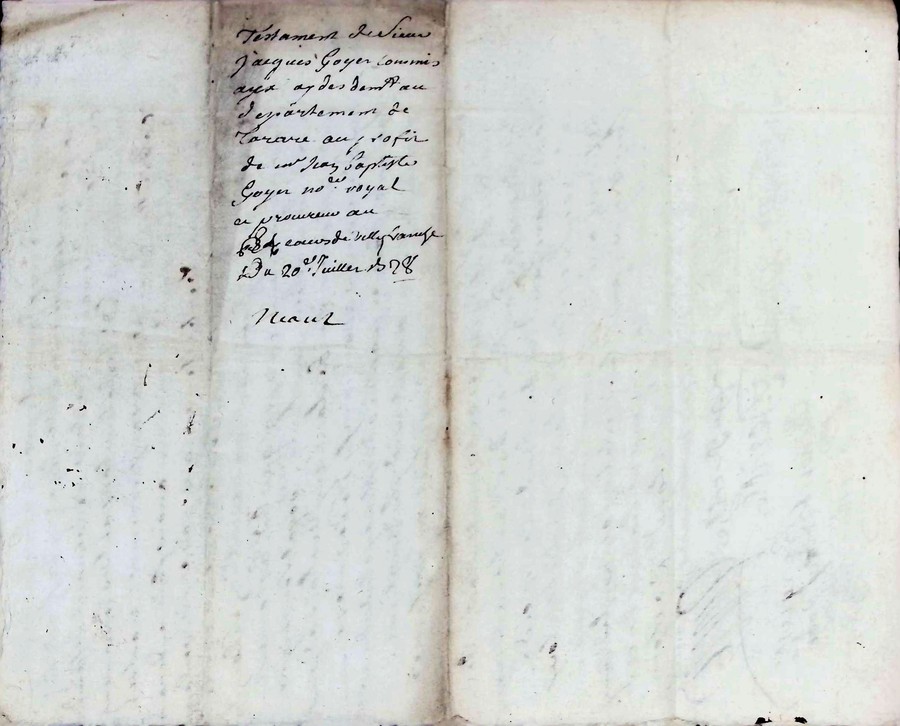 Testament de Sieur
jacques Goyer commis
aux aydes demt au
departement de
Tarare au profit
de mr Jean Baptiste
Goyer nore royal
et procureur au
cours de villefranche
Du 20e Juillet